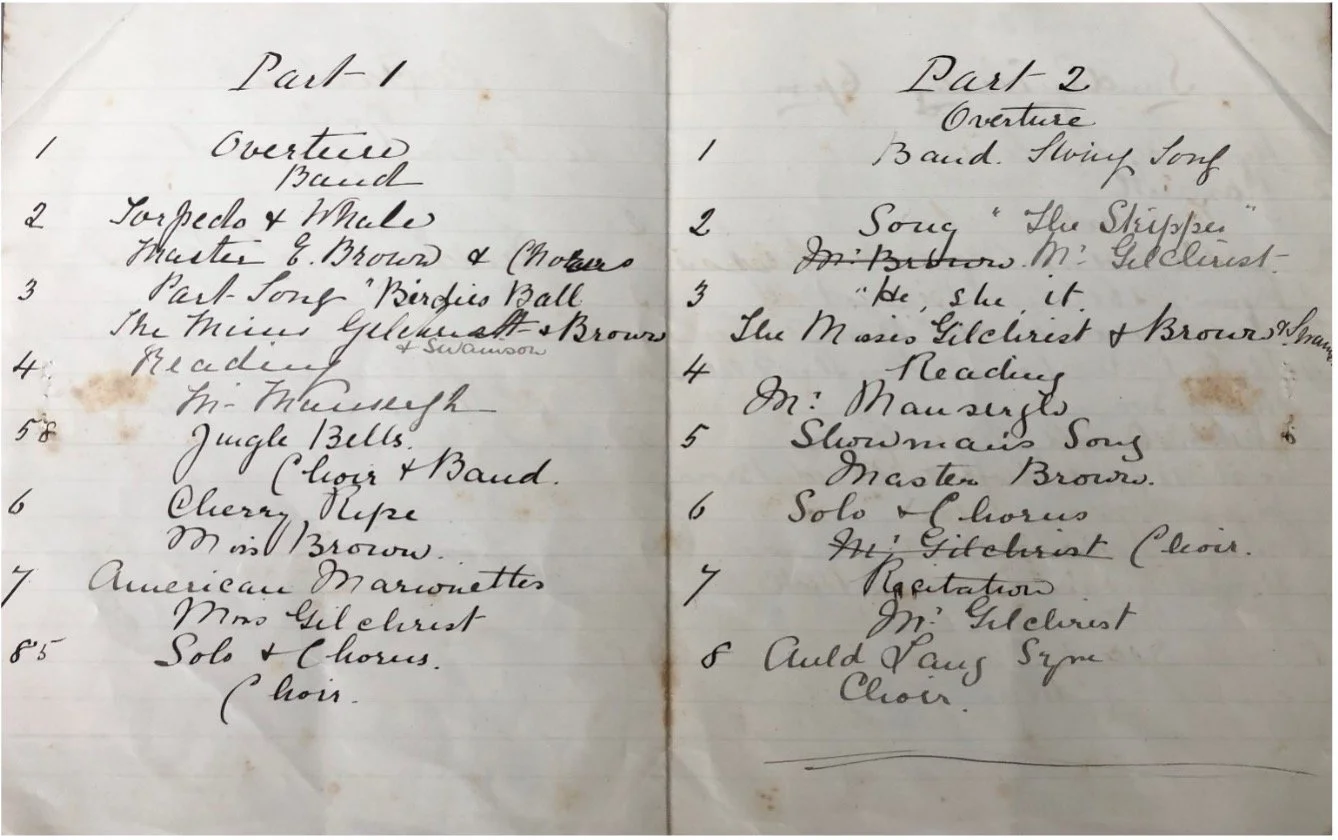 Part 1
1 Overture
Band
2 Torpedo & Whale
Master E. Brown & Chorus
3 Part Song "Birdies Ball
The Misses Gilchrist & Brown
& Swanson
4 Reading
Mr Mansergh
5 8 Jingle Bells.
Choir & Band.
6 Cherry Ripe
Miss Brown.
7 American Marionettes
Miss Gilchrist
8 5 Solo & Chorus.
Choir.
Part 2
Overture
1 Band. Swing Song
2 Song "The Skipper"
Mr. Brown. Mr. Gilchrist.
3 "He, she, it
The Misses Gilchrist & Brown &
4 Reading
Mr. Mansergh
5 Showman's Song
Master Brown.
6 Solo & Chorus
Mr. Gilchrist Choir.
7 Recitation
Mr. Gilchrist
8 Auld Lang Syne
Choir.